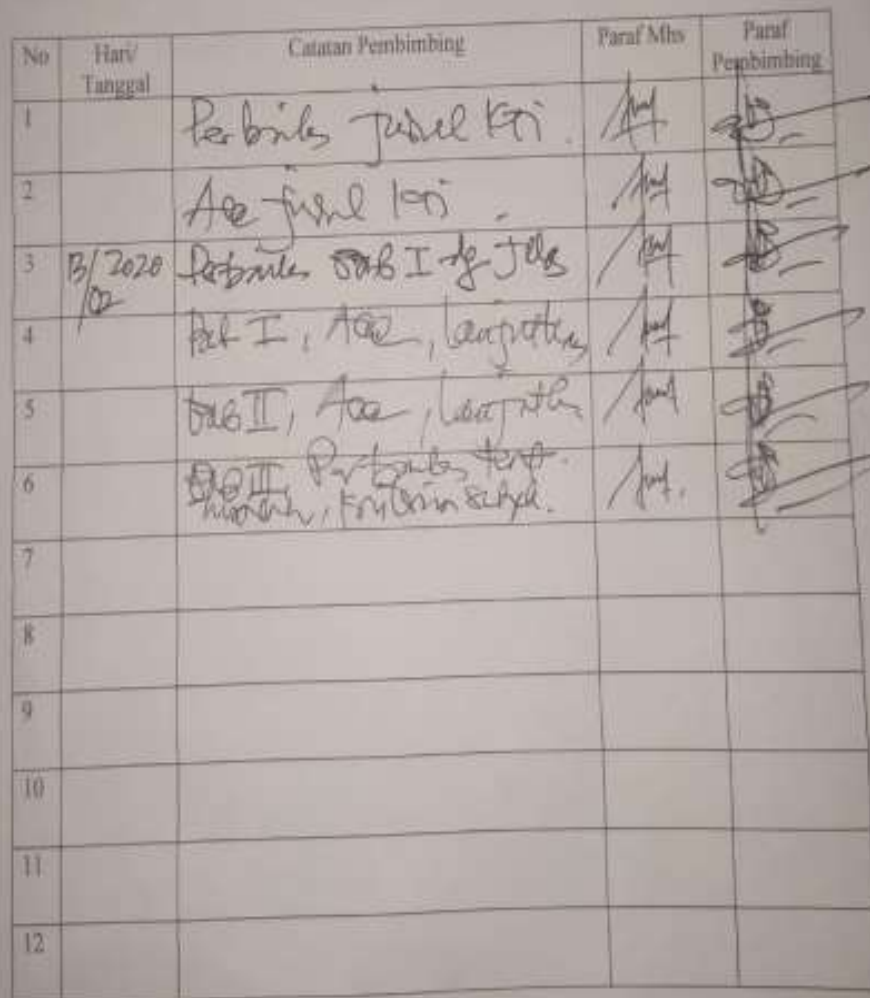 No Hari/ Tanggal Catatan Pembimbing Paraf Mhs Paraf Pembimbing
1 Perbaiki judul KTI.
2 Acc judul KTI.
3 13/02 2020 Perbaiki BAB I dg jelas
4 Bab I, Acc, lanjutkan
5 BAB II, Acc, lanjutkan
6 BAB III, Perbaiki
7
8
9
10
11
12